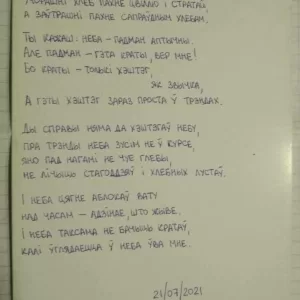 УЧОРАШНІ ХЛЕБ ПАХНЕ ЦВІЛЛЮ І СТРАТАЙ,
А ЗАЎТРАШНІ ПАХНЕ САПРАЎДНЫМ ХЛЕБАМ.
ТЫ КАЖАШ: НЕБА – ПАДМАН АПТЫЧНЫ.
АЛЕ ПАДМАН – ГЭТА КРАТЫ, ВЕР МНЕ!
БО КРАТЫ – ТОЛЬКІ ХЭШТЭГ,
ЯК ЗВЫЧКА,
А ГЭТЫ ХЭШТЭГ ЗАРАЗ ПРОСТА Ў ТРЭНДАХ.
ДЫ СПРАВЫ НЯМА ДА ХЭШТЭГАЎ НЕБУ,
ПРА ТРЭНДЫ НЕБА ЗУСІМ НЕ Ў КУРСЕ,
ЯНО ПАД НАГАМІ НЕ ЧУЕ ГЛЕБЫ,
НЕ ЛІЧЫЦЬ СТАГОДДЗЯЎ І ХЛЕБНЫХ ЛУСТАЎ.
І НЕБА ЦЯГНЕ АБЛОКАЎ ВАТУ
НАД ЧАСАМ – АДЗІНАЕ, ШТО ЖЫВЕ.
І НЕБА ТАКСАМА НЕ БАЧЫЦЬ КРАТАЎ,
КАЛІ ЎГЛЯДАЕЦЦА Ў НЕБА ЎВА МНЕ.
21/07/2021